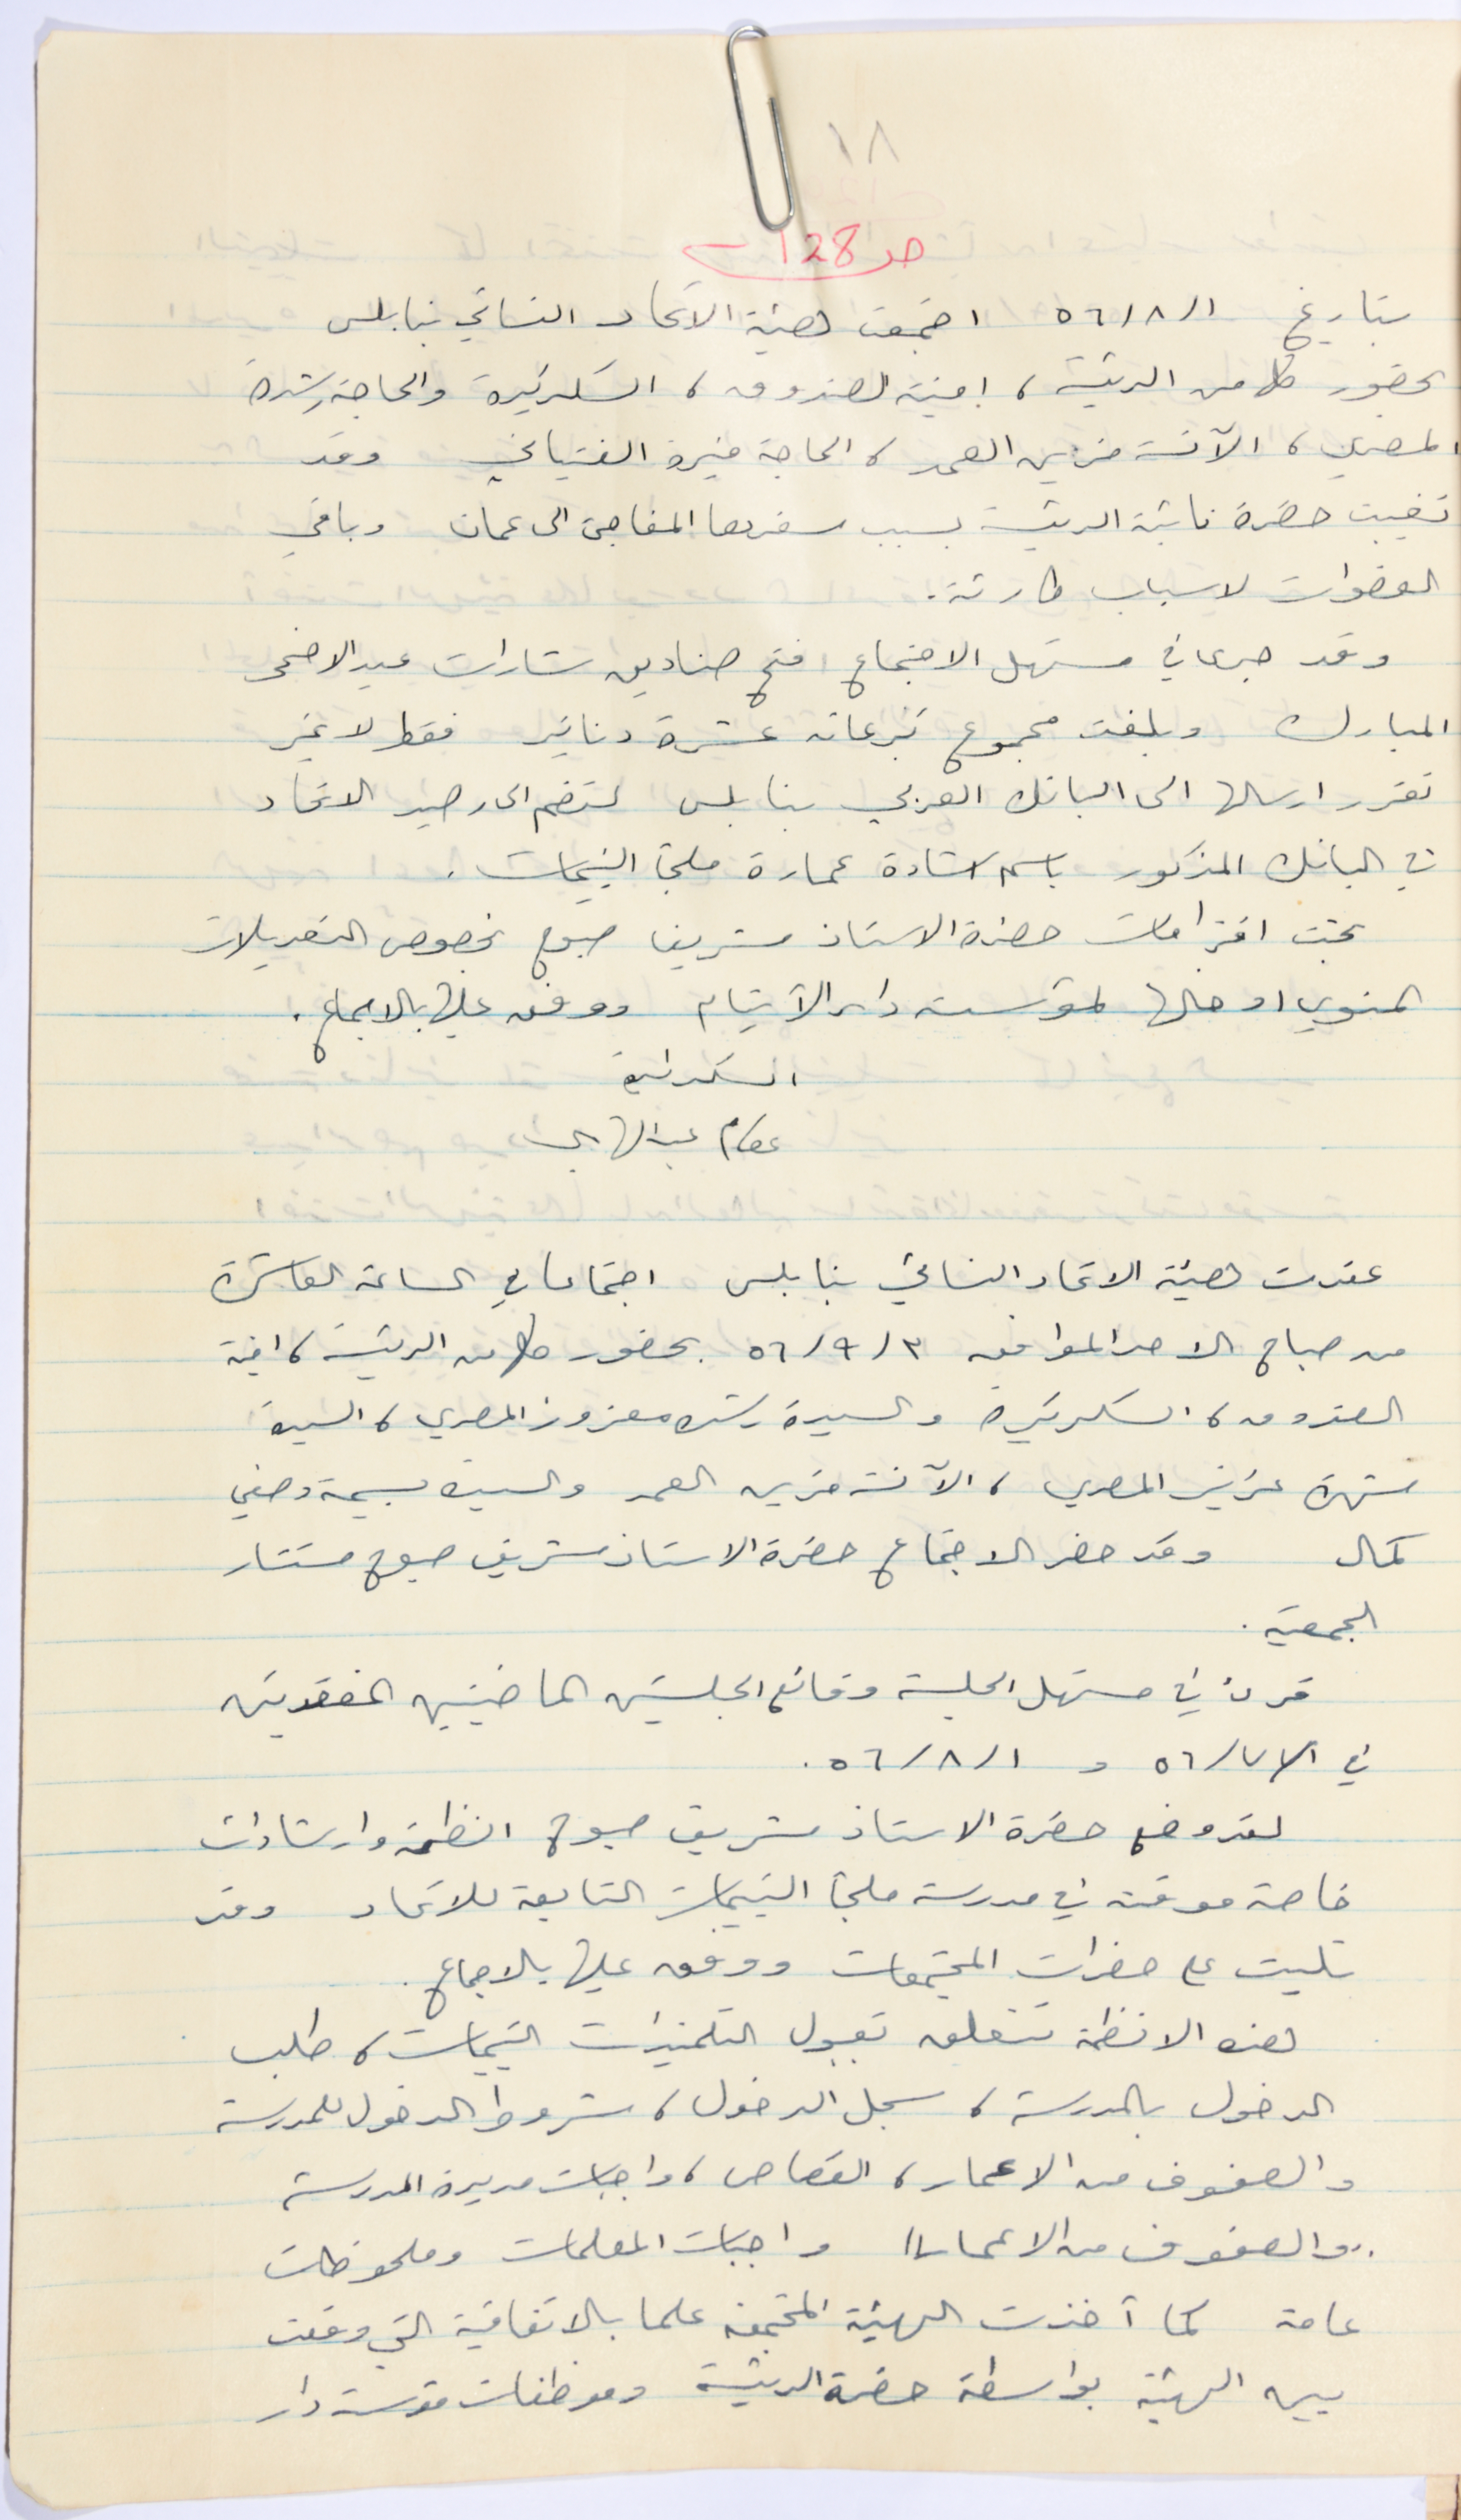 ١٨
صـ 128
بتاريخ ١/٨/٥٦ اجتمعت هيئة الاتحاد النسائي بنابلس
بحضور كل من الرئيسة ، امينة الصندوق ، السكرتيرة والحاجة رشدة
المصري ، الآنسة مزين العمد ، الحاجة منيرة الفتياني وقد
تغيبت حضرة نائبة الرئيسة بسبب سفرها المفاجئ الى عمان وباقي
العضوات لاسباب طارئة .
وقد جرى في مستهل الاجتماع فتح صناديق شارات عيد الاضحى
المبارك وبلغت مجموع تبرعاته عشرة دنانير فقط لا غير
تقرر ارسالها الى البانك العربي بنابلس لتضم الى رصيد الاتحاد
في البانك المذكور باسم اشادة عمارة ملجأ اليتيمات .
بحثت اقتراحات حضرة الاستاذ شريف صبوح بخصوص التعديلات
المنوي ادخالها لمؤسسة دار الأيتام ووفق عليها بالاجماع .
السكرتيرة
عصام عبد الهادي
عقدت هيئة الاتحاد النسائي بنابلس اجتماعا في الساعة العاشرة
من صباح الاحد الموافق ٢/٩/٥٦ بحضور كل من الرئيسة ، امينة
الصندوق ، السكرتيرة والسيدة رشده معزوز المصري ، السيدة
شهرة عزيز المصري ، الآنسة مزين العمد والسيدة بسيمة وصفي
كمال وقد حضر الاجتماع حضرة الاستاذ شريف صبوح مستشار
الجمعية .
قرئ في مستهل الجلسة وقائع الجلستين الماضيتين المنعقدتين
في ٧/٥٦ و ١/٨/٥٦ .
لقد وضع حضرة الاستاذ شريف صبوح انظمة وارشادات
خاصة موقتة في مدرسة ملجأ اليتيمات التابعة للاتحاد وقد
تليت على حضرات المجتمعات ووفق عليها بالاجماع .
هذه الانظمة تتعلق بقبول التلميذات اليتيمات ، طلب
الدخول بالمدرسة ، سجل الدخول ، شروط الدخول للمدرسة
والصفوف من الاعمار ، القصاص ، واجبات مديرة المدرسة
,,والصفوف من الاعمار,, واجبات المعلمات وملحوظات
عامة كما أخذت الهيئة المجتمعة علما بالاتفاقية التي وقعت
بين الهيئة بواسطة حضرة الرئيسة وموظفات مؤسسة دار